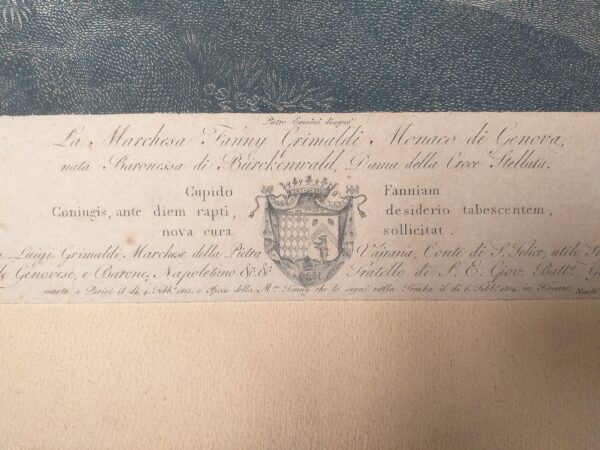 Pietro Ermini disegnò
La Marchesa Fanny Grimaldi Monaco di Genova,
nata Baronessa di Bürckenwald, Dama della Croce Stellata.
Cupido Fanniam
Coniugis, ante diem rapti, desiderio tabescentem,
nova cura sollicitat.
Luigi Grimaldi Marchese della Pietra Vairana, Conte di S. Felice, utile
Genovese, e Barone, Napoletano &c. &c. Fratello di S. E. Giov. Batt.
morto a Parigi il dì 4. Febb. e Sposo della M. Fanny che lo seguì nella Tomba il dì 6. Febb. 1804. in Firenze.